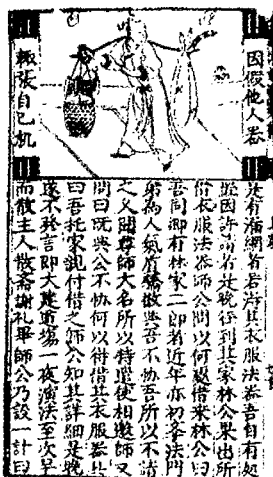 因假他人
輙張自己机
有漏網者若游其衣服法器吾自有処
因許諾者是晚徑到其家林公果出所
借衣服法器師公問以何處借來林公曰
吾同鄉有林家二郎者近年亦初參法門
弟為人氣質驕傲與吾不協吾所以不請
之又聞尊師大名所以特選使相邀師又
問曰既與公不協何以得借其衣服器林
曰吾托家親付借之師公知其詳細是晚
遂不發言即大建道場一夜演法至次早
而散主人散齋謝礼畢師公乃設一計曰